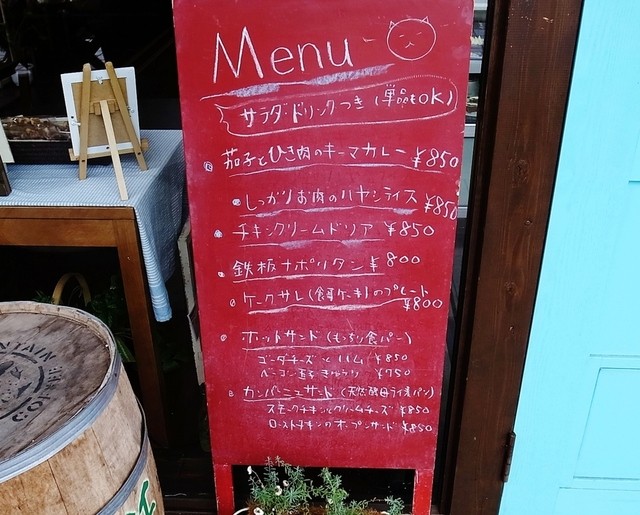 Menu
サラダ・ドリンクつき (単品もOK)
茄子とひき肉のキーマカレー ¥850
しっかりお肉のハヤシライス ¥850
チキンクリームドリア ¥850
鉄板ナポリタン ¥800
ケークサレ(食事ケーキ)のプレート ¥800
ホットサンド (もっちり食パン)
ゴーダチーズとハム ¥850
ベーコン玉子きゅうり ¥750
カンパーニュサンド (天然酵母ライ麦パン)
スモークチキンとクリームチーズ ¥850
ローストチキンのオープンサンド ¥850
MOUNTAIN
COFFEE